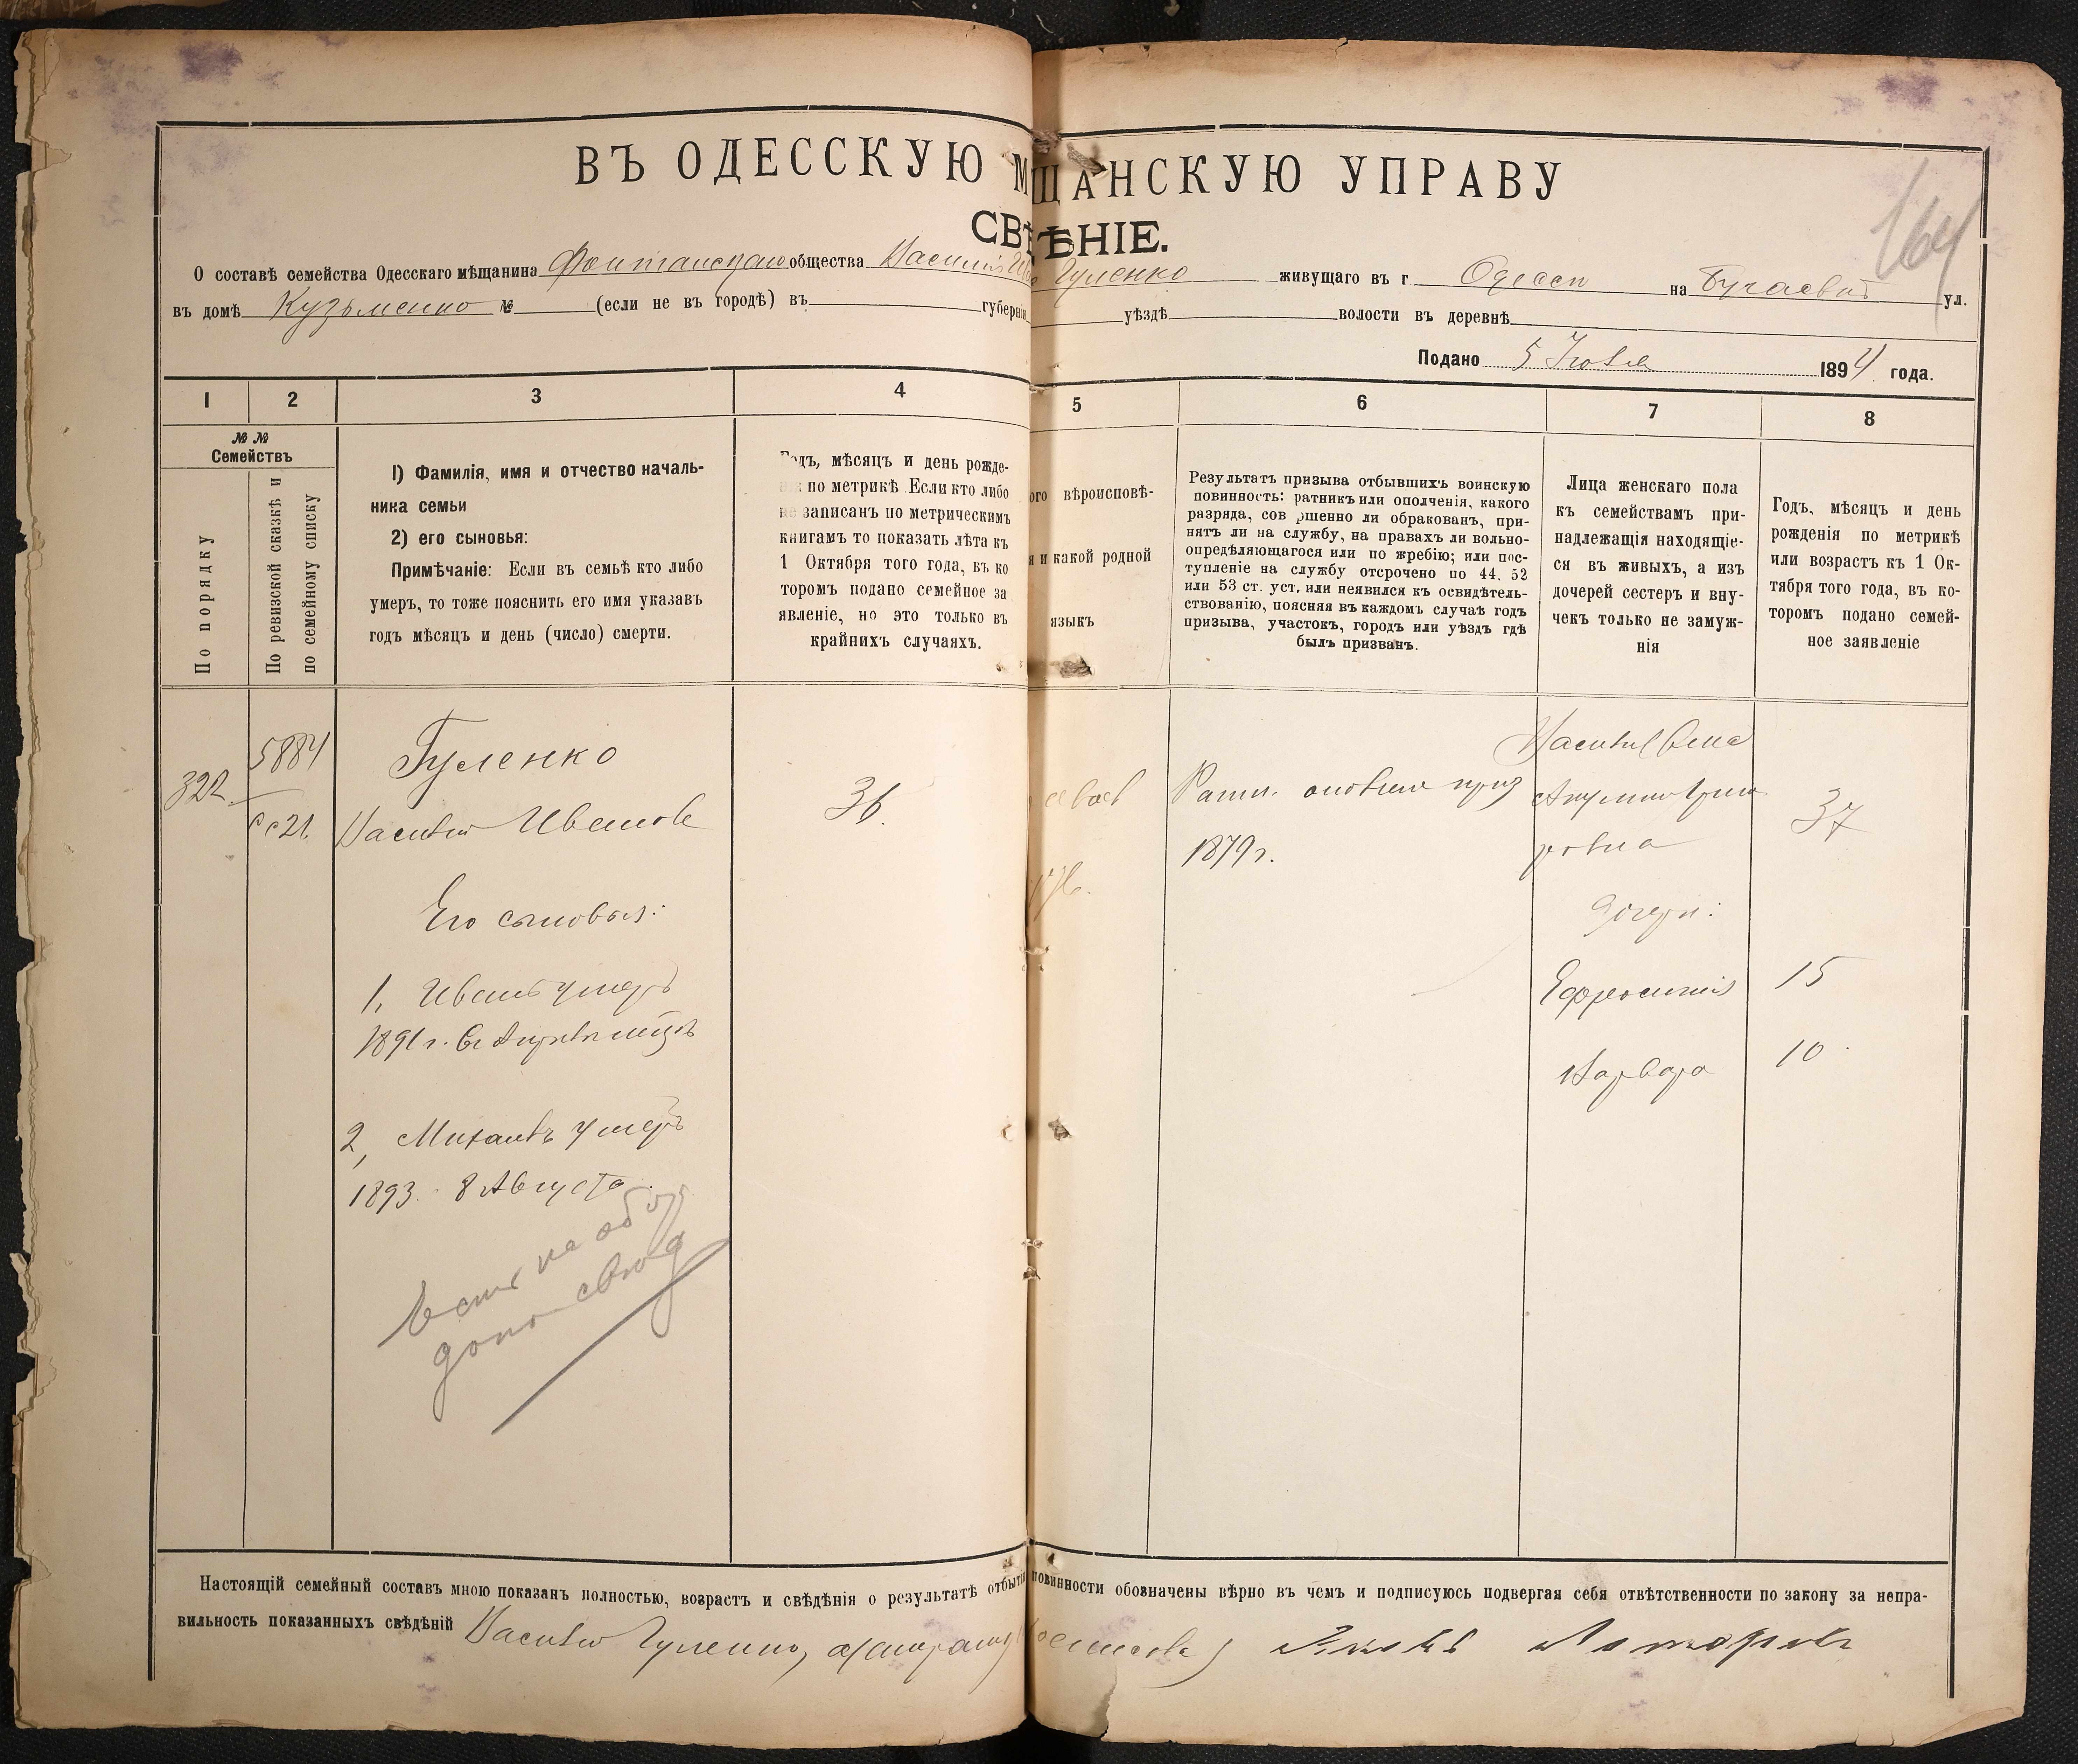 ВЪ ОДЕССКУЮ М ЩАНСКУЮ УПРАВУ
СВѢ ѢНІЕ.
164
О составѣ семейства Одесскаго мѣщанина Фонтанскаго общества Василій Ив Гуленко живущаго въ г Одессѣ на ул.
въ домѣ Кузьменко № (если не въ городѣ) въ губерні уѣздѣ волости въ деревнѣ
Подано 5 1894 года.
1 2 3 4 5 6 7 8
№ №
Семействъ
По порядку
По ревизской сказкѣ и
по семейному списку
1) Фамилія, имя и отчество началь-
ника семьи
2) его сыновья:
Примѣчаніе: Если въ семьѣ кто либо
умеръ, то тоже пояснить его имя указавъ
годъ мѣсяцъ и день (число) смерти.
Годъ, мѣсяцъ и день рожде-
по метрикѣ Если кто либо
не записанъ по метрическимъ
книгамъ то показать лѣта къ
1 Октября того года, въ ко
торомъ подано семейное за
явленіе, но это только въ
крайнихъ случаяхъ.
ого вѣроисповѣ-
я и какой родной
языкъ
Результатъ призыва отбывшихъ воинскую
повинность: ратникъ или ополченія, какого
разряда, сов ршенно ли обракованъ, при-
нятъ ли на службу, на правахъ ли вольно-
опредѣляющагося или по жребію; или пос-
тупленіе на службу отсрочено по 44, 52
или 53 ст. уст. или неявился къ освидѣтель-
ствованію, поясняя въ каждомъ случаѣ годъ
призыва, участокъ, городъ или уѣздъ гдѣ
былъ призванъ.
Лица женскаго пола
къ семействамъ при-
надлежащія находящіе-
ся въ живыхъ, а изъ
дочерей сестеръ и вну-
чекъ только не замуж-
нія
Годъ, мѣсяцъ и день
рожденія по метрикѣ
или возрастъ къ 1 Ок-
тября того года, въ ко-
торомъ подано семей-
ное заявленіе
322
5884
21.
Гуленко
Василій Ивановъ
36.
Ратн. ополчен приз
1879 г.
Василія жена
37
Его сыновья:
дочери:
1, Иванъ умеръ
1891 г. въ Апрѣлѣ мѣсяцѣ
Ефросинія 15
Варвара 10
2, Михаилъ умеръ
1893. 8 Августа.
Настоящій семейный составъ мною показанъ полностью, возрастъ и свѣдѣнія о результатѣ отбыті повинности обозначены вѣрно въ чемъ и подписуюсь подвергая себя отвѣтственности по закону за непра-
вильность показанныхъ свѣдѣній Василій Гуленко,